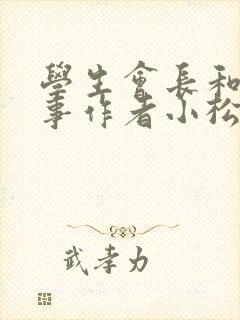 學生會長和
事作者小松
武孝力